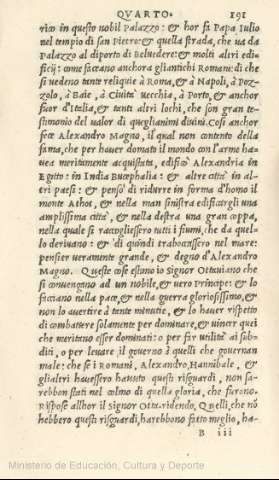 QVARTO. 191
rico in questo nobil Palazzo: & hor fa Papa Iulio
nel tempio di san Pietro: & quella strada, che ua da
Palazzo al diporto di Beluedere: & molti altri edi-
ficij: come faceano anchora gliantichi Romani: di che
si uedeno tante reliquie à Roma, & à Napoli, à Poz-
zolo, à Baie, à Ciuita uecchia, à Porto, & anchor
fuor d'Italia, & tanti altri lochi, che son gran te-
stimonio del ualor di quegl'animi diuini. Cosi anchor
fece Alexandro Magno, il qual non contento della
fama, che per hauer domato il mondo con l'arme ha-
uea meritamente acquistata, edificò Alexandria in
Egitto: in India Bucephalia: & altre città in al-
tri paesi: & pensò di ridurre in forma d'homo il
monte Athos, & nella man sinistra edificargli una
amplissima città, & nella destra una gran coppa,
nella quale si raccogliessero tutti i fiumi, che da quel-
lo deriuano: & di quindi traboccassero nel mare:
pensier ueramente grande, & degno d'Alexandro
Magno. Queste cose estimo io Signor Ottauiano che
si conuengano ad un nobile, & uero Principe: & lo
facciano nella pace, & nella guerra gloriosissimo, &
non lo auertire à tante minutie, & lo hauer rispetto
di combattere solamente per dominare, & uincer quei
che meritano esser dominati: o per far utilità ai sub-
diti, o per leuare il gouerno à quelli che gouernan
male: che se i Romani, Alexandro, Hannibale, &
glialtri hauessero hauuto questi risguardi, non sa-
rebbon stati nel colmo di quella gloria, che furono.
Rispose allhor il Signor Otta. ridendo, Quelli, che nõ
hebbero questi risguardi, harebbono fatto meglio, ha-
B iii
Ministerio de Educación, Cultura y Deporte